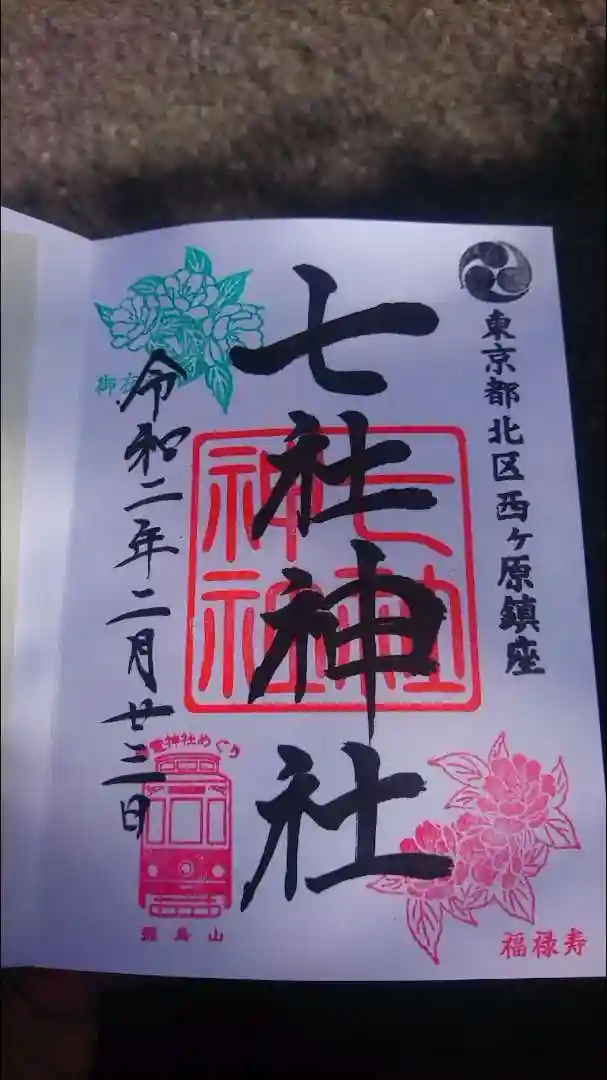 東京都北区西ヶ原鎮座
七社神社
七社神社
令和二年二月廿三日
御
電神社めぐり
飛鳥山
福禄寿